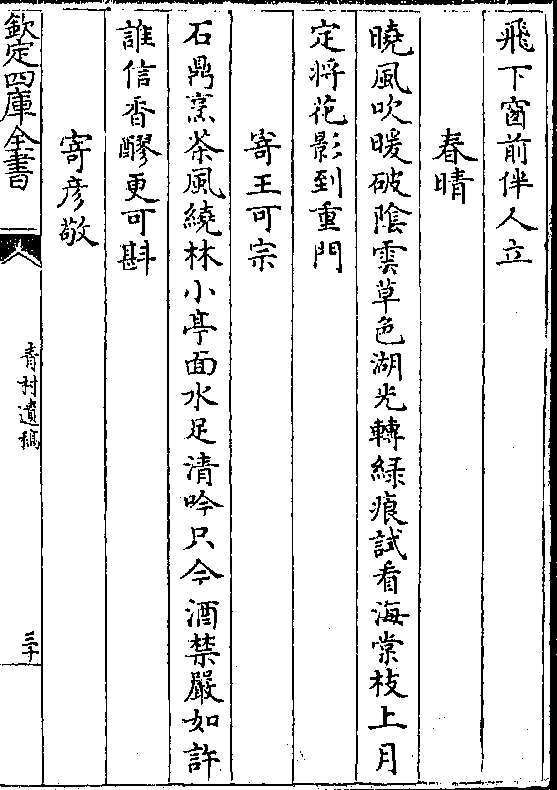 飛下窗前伴人立
春晴
曉風吹暖破陰雲草色湖光轉綠痕試看海棠枝上月
定將花影到重門
寄王可宗
石鼎烹茶風繞林小亭面水足清吟只今酒禁嚴如許
誰信香醪更可斟
寄彥敬
欽定四庫全書
青村遺稿
三十